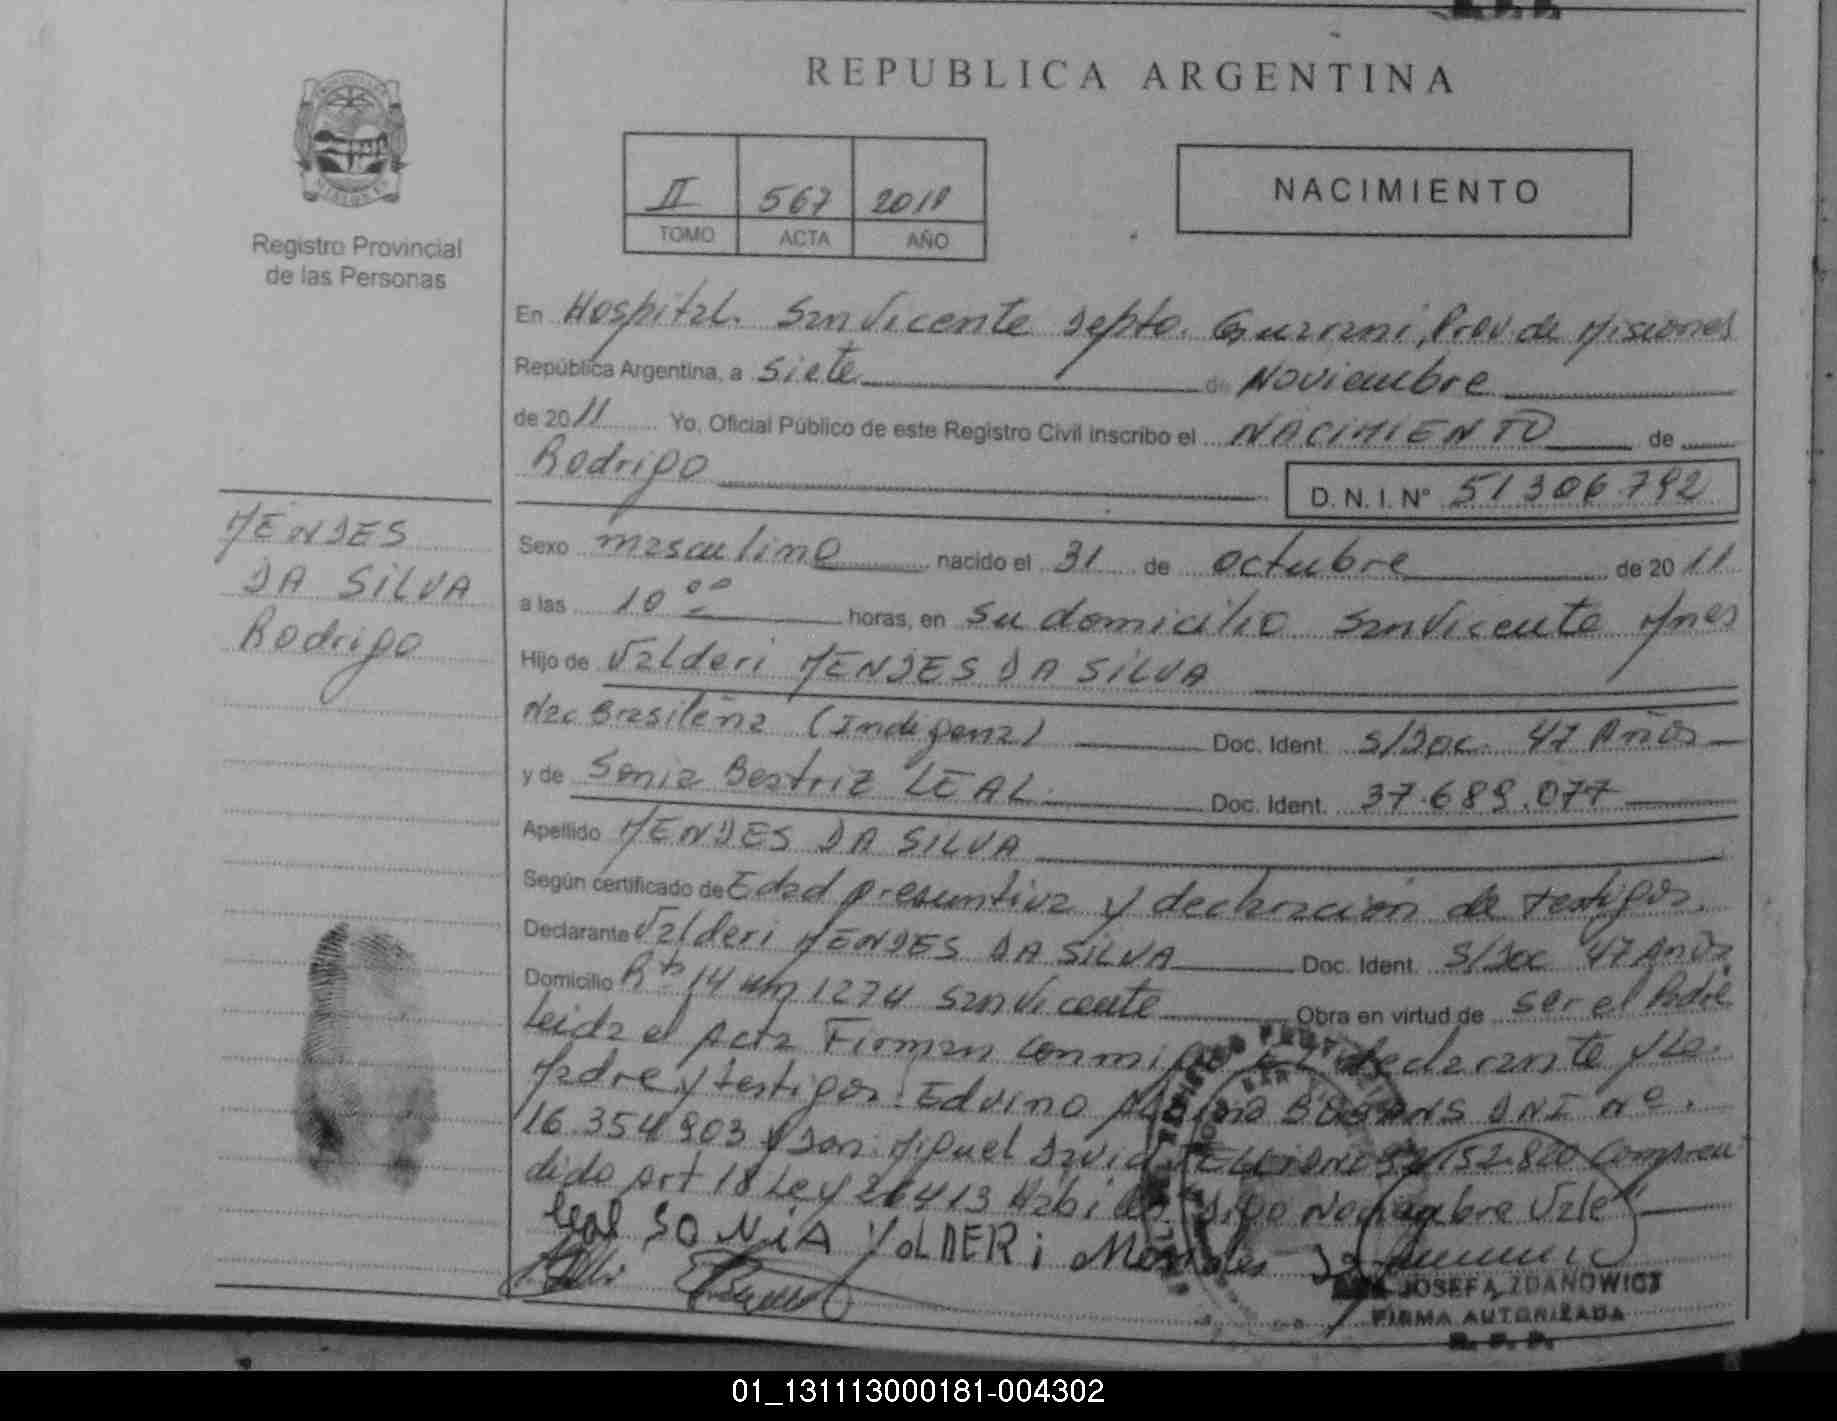 REPUBLICA ARGENTINA
II 567 2011
TOMO ACTA AÑO
NACIMIENTO
Registro Provincial
de las Personas
MENDES
DA SILVA
Rodrigo
En Hospital. San Vicente Depto. Guarani, Prov. de Misiones
República Argentina, a Siete de Noviembre
de 2011 Yo, Oficial Público de este Registro Civil inscribo el NACIMIENTO de
Rodrigo D.N.I. N° 51306792
Sexo masculino nacido el 31 de octubre de 2011
a las 10 00 horas, en su domicilio San Vicente Mnes
Hijo de Valderi MENDES DA SILVA
Nac Brasileña (Indigena) Doc. Ident. S/Doc. 47 Años
y de Sonia Beatriz LEAL Doc. Ident. 37.689.077
Apellido MENDES DA SILVA
Según certificado de Edad presuntiva y declaracion de testigos.
Declarante Valderi MENDES DA SILVA Doc. Ident. S/Doc 47 Años
Domicilio Rta 14 Km 1274 San Vicente Obra en virtud de ser el Padre
Leida el Acta Firman conmigo el declarante y La
Madre y testigos: Edvino DNI nº.
16.354.903 y Don: Miguel David 152.820 Compren
dido Art 18 Ley 26413 Digo Noviembre Vale
leal SONIA VOLDERi
JOSEFA ZDANOWICZ
FIRMA AUTORIZADA
R. P. P.
01_131113000181-004302